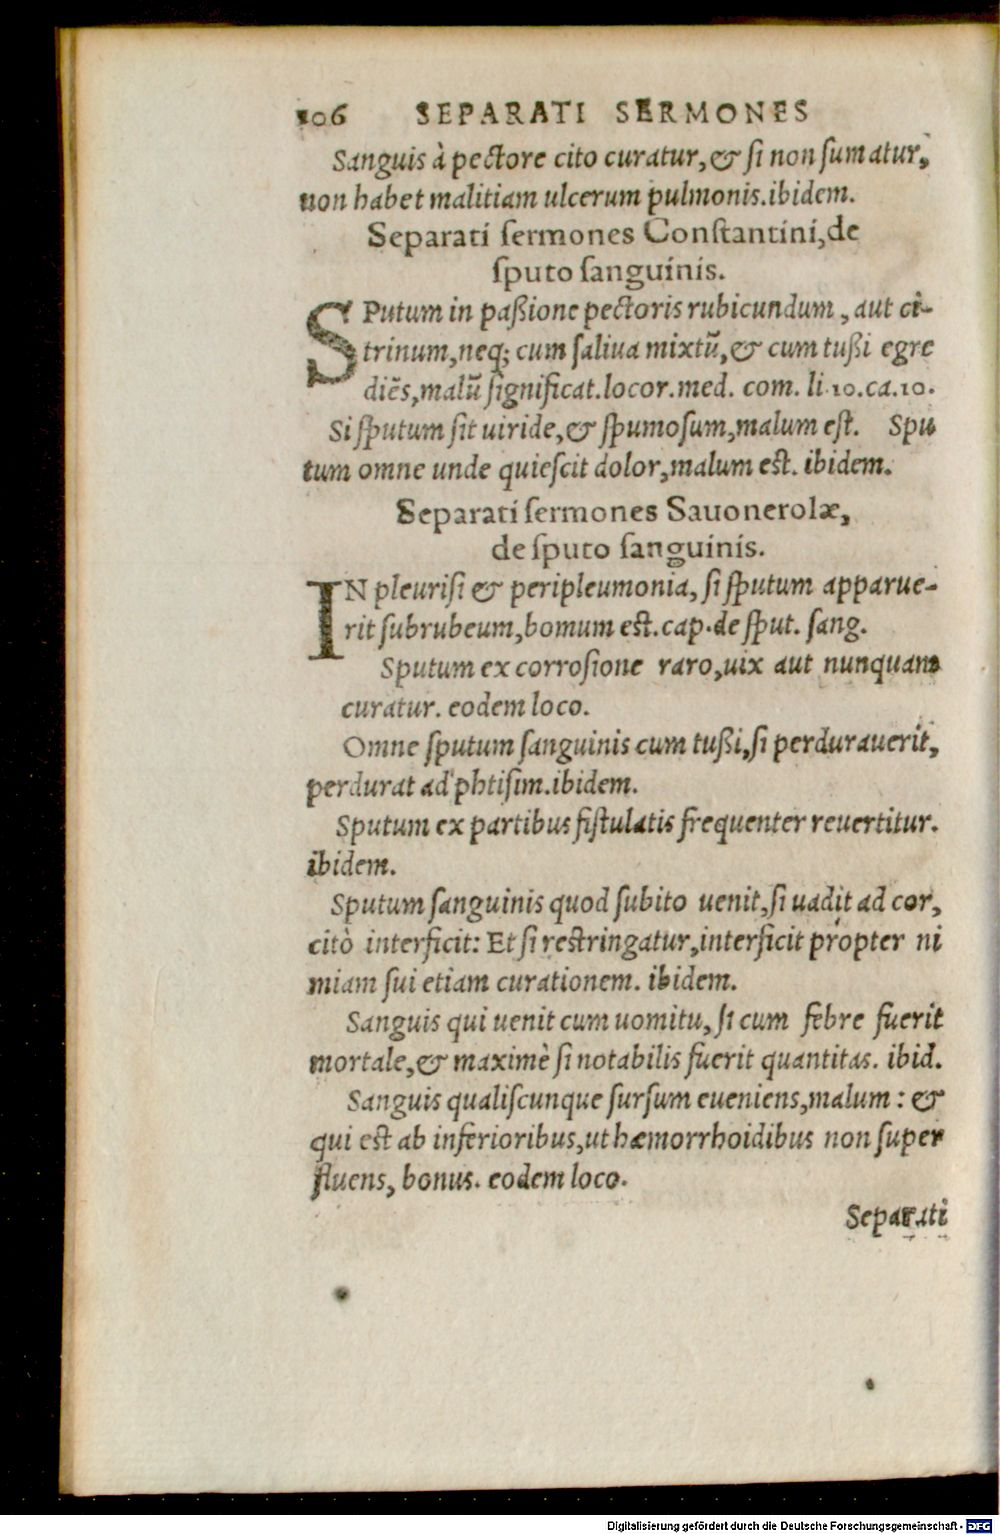 106 SEPARATI SERMONES
Sanguis à pectore cito curatur, & si non sumatur,
non habet malitiam ulcerum pulmonis. ibidem.
Separati sermones Constantini, de
sputo sanguinis.
SPutum in paßione pectoris rubicundum, aut ci-
trinum, neq; cum saliua mixtũ, & cum tußi egre
diẽs, malũ significat. locor. med. com. li. 10. ca. 10.
Si sputum sit uiride, & spumosum, malum est. Spu
tum omne unde quiescit dolor, malum est. ibidem.
Separati sermones Sauonerolæ,
de sputo sanguinis.
IN pleurisi & peripleumonia, si sputum apparue-
rit subrubeum, bomum est. cap. de sput. sang.
Sputum ex corrosione raro, uix aut nunquam
curatur. eodem loco.
Omne sputum sanguinis cum tußi, si perdurauerit,
perdurat ad phtisim. ibidem.
Sputum ex partibus fistulatis frequenter reuertitur.
ibidem.
Sputum sanguinis quod subito uenit, si uadit ad cor,
citò interficit: Et si restringatur, interficit propter ni
miam sui etiam curationem. ibidem.
Sanguis qui uenit cum uomitu, si cum febre fuerit
mortale, & maximè si notabilis fuerit quantitas. ibid.
Sanguis qualiscunque sursum eueniens, malum: &
qui est ab inferioribus, ut hæmorrhoidibus non super
fluens, bonus. eodem loco.
Separati
Digitalisierung gefördert durch die Deutsche Forschungsgemeinschaft - DFG